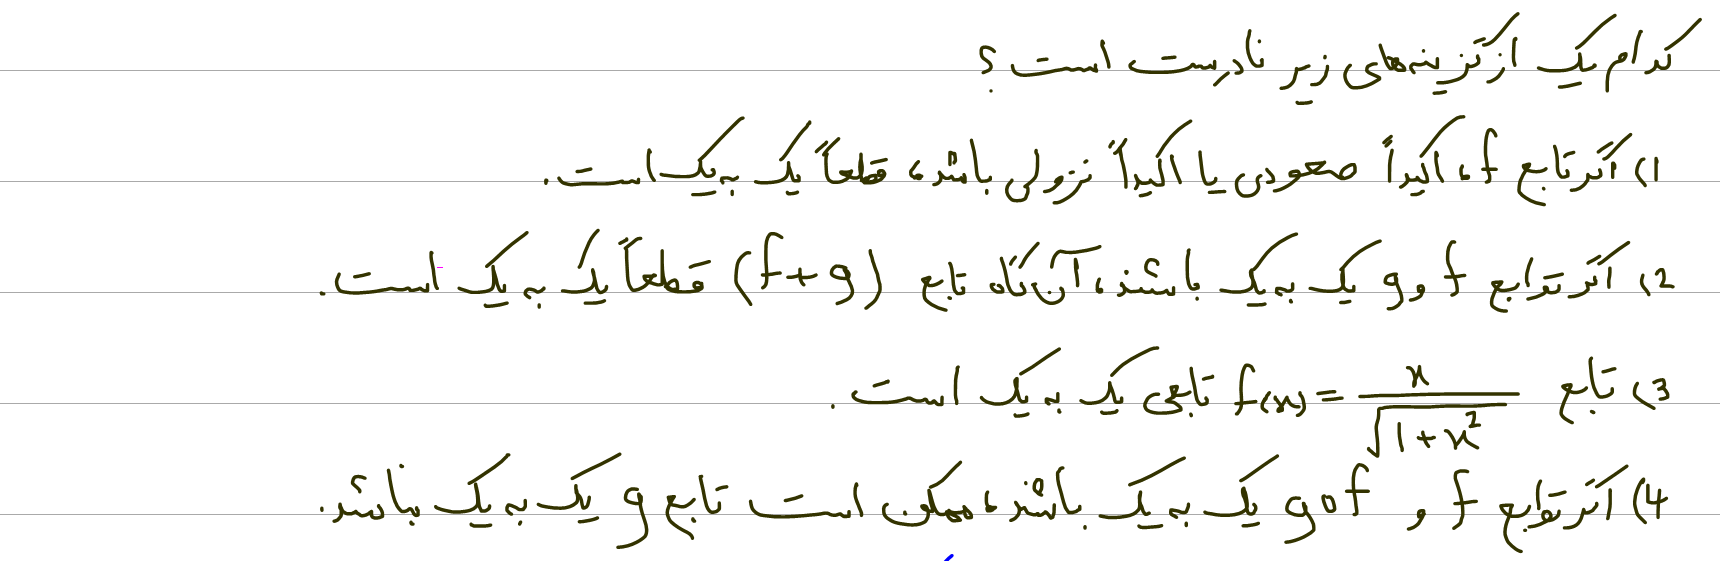 کدام یک از گزینه‌های زیر نادرست است؟
1) اگر تابع f، اکیداً صعودی یا اکیداً نزولی باشد، قطعاً یک به یک است.
2) اگر توابع f و g یک به یک باشند، آن‌گاه تابع (f+g) قطعاً یک به یک است.
3) تابع f(x) = x/√(1+x²) تابعی یک به یک است.
4) اگر توابع f و gof یک به یک باشند، ممکن است تابع g یک به یک نباشد.